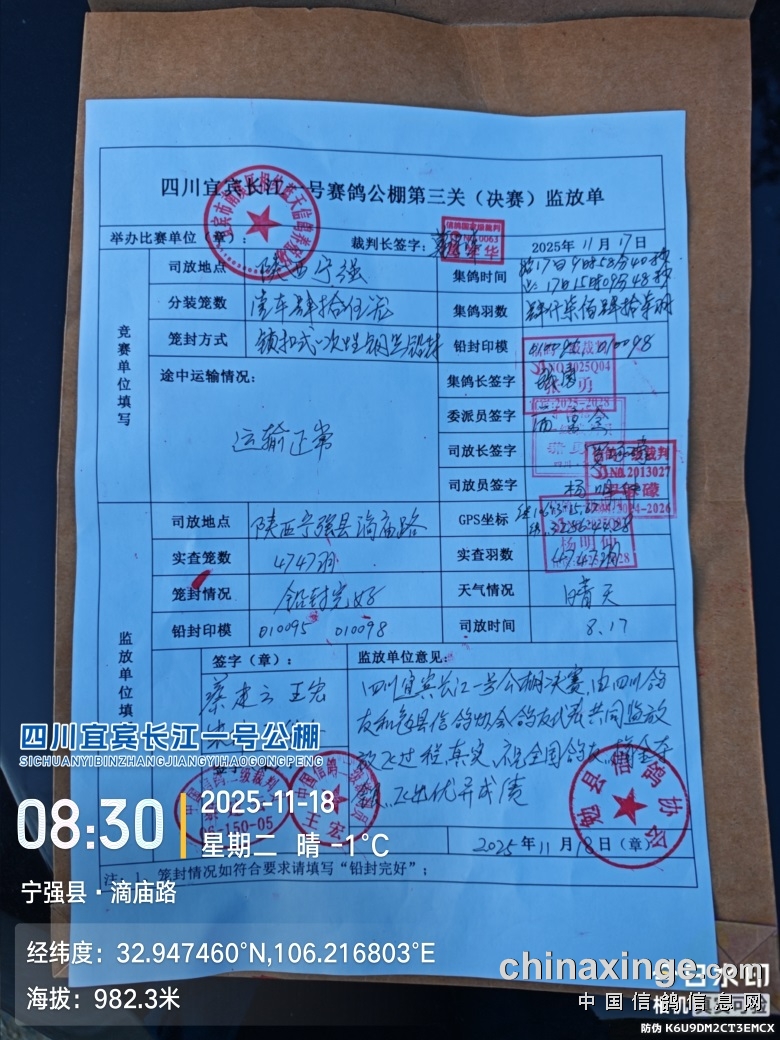 四川宜宾长江一号赛鸽公棚第三关（决赛）监放单
举办比赛单位（章）：
裁判长签字：
2025年11月17日
竞赛单位填写
司放地点 陕西宁强
集鸽时间 17日9时58分40秒
17日15时09分48秒
分装笼数
集鸽羽数 肆仟柒佰肆拾柒羽
笼封方式 锁扣式一次性钢丝铅封
铅封印模 010095 010098
途中运输情况：
运输正常
集鸽长签字
委派员签字
司放长签字
司放员签字
监放单位填
司放地点 陕西宁强县滴庙路
GPS坐标
实查笼数 4747羽
实查羽数 4747羽
笼封情况 铅封完好
天气情况 晴天
铅封印模 010095 010098
司放时间 8.17
签字（章）：
监放单位意见：
蔡建云 王宏
四川宜宾长江一号公棚决赛，由四川鸽
友和勉县信鸽协会鸽友代表共同监放
放飞过程真实，
飞出优异成绩
勉县信鸽协会
2025年11月18日（章）
注：1、笼封情况如符合要求请填写“铅封完好”；
四川宜宾长江一号公棚
SICHUANYIBINZHANGJIANGYIHAOGONGPENG
08:30
2025-11-18
星期二 晴 -1°C
宁强县·滴庙路
经纬度：32.947460°N,106.216803°E
海拔：982.3米
chinaxinge.com
中国信鸽信息网
今日水印
相机 真实可验
防伪 K6U9DM2CT3EMCX